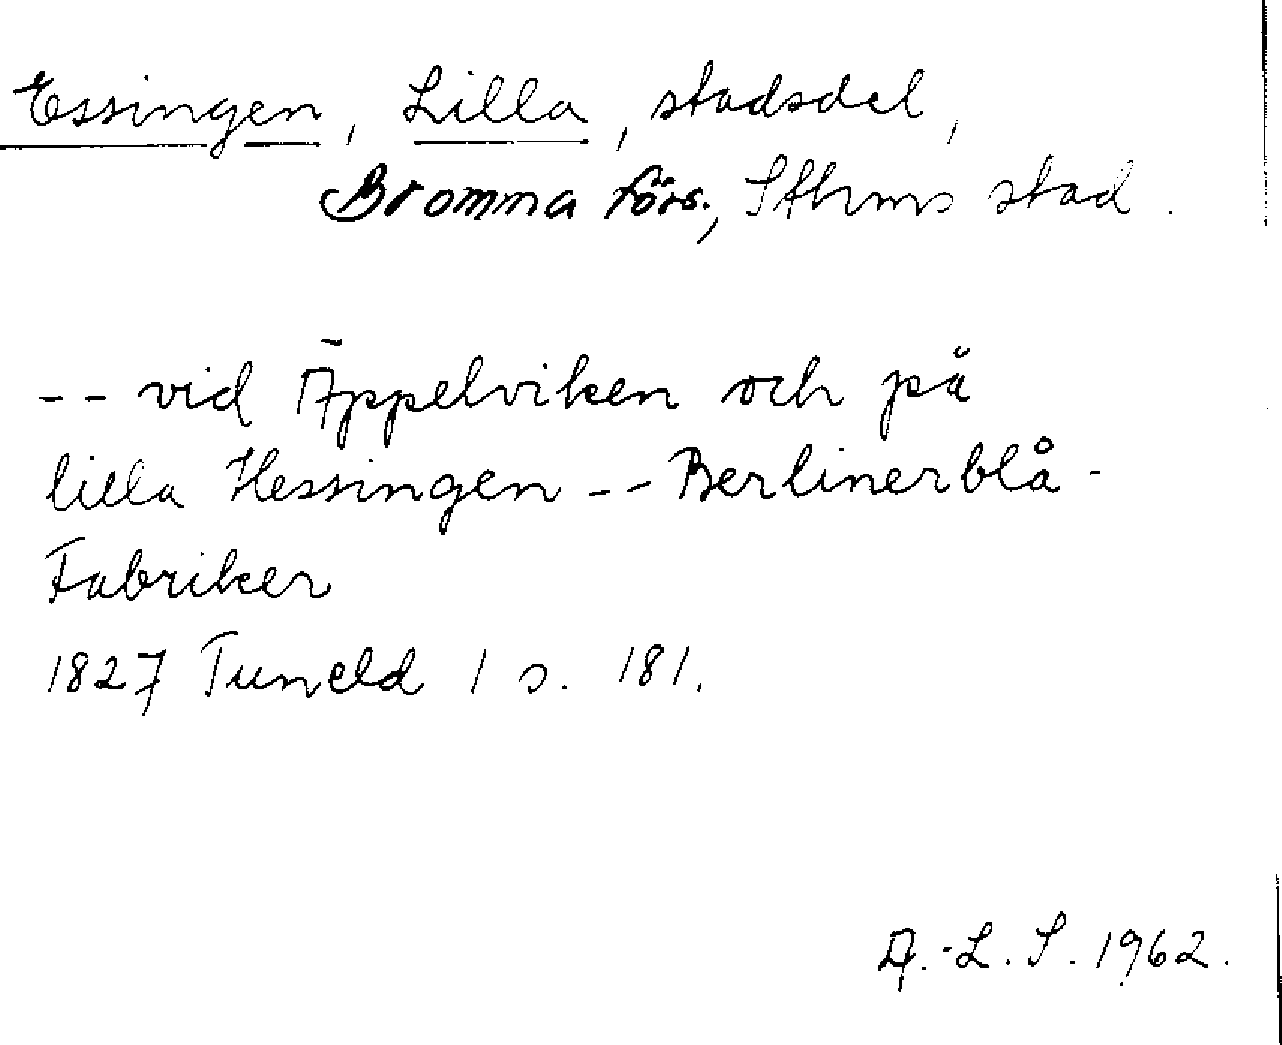 Essingen, Lilla, stadsdel,
Bromma förs., Sthms stad.
-- vid Äppelviken och på
lilla Hessingen -- Berlinerblå-
Fabriker
1827 Tuneld 1 s. 181.
A.-L. S. 1962.